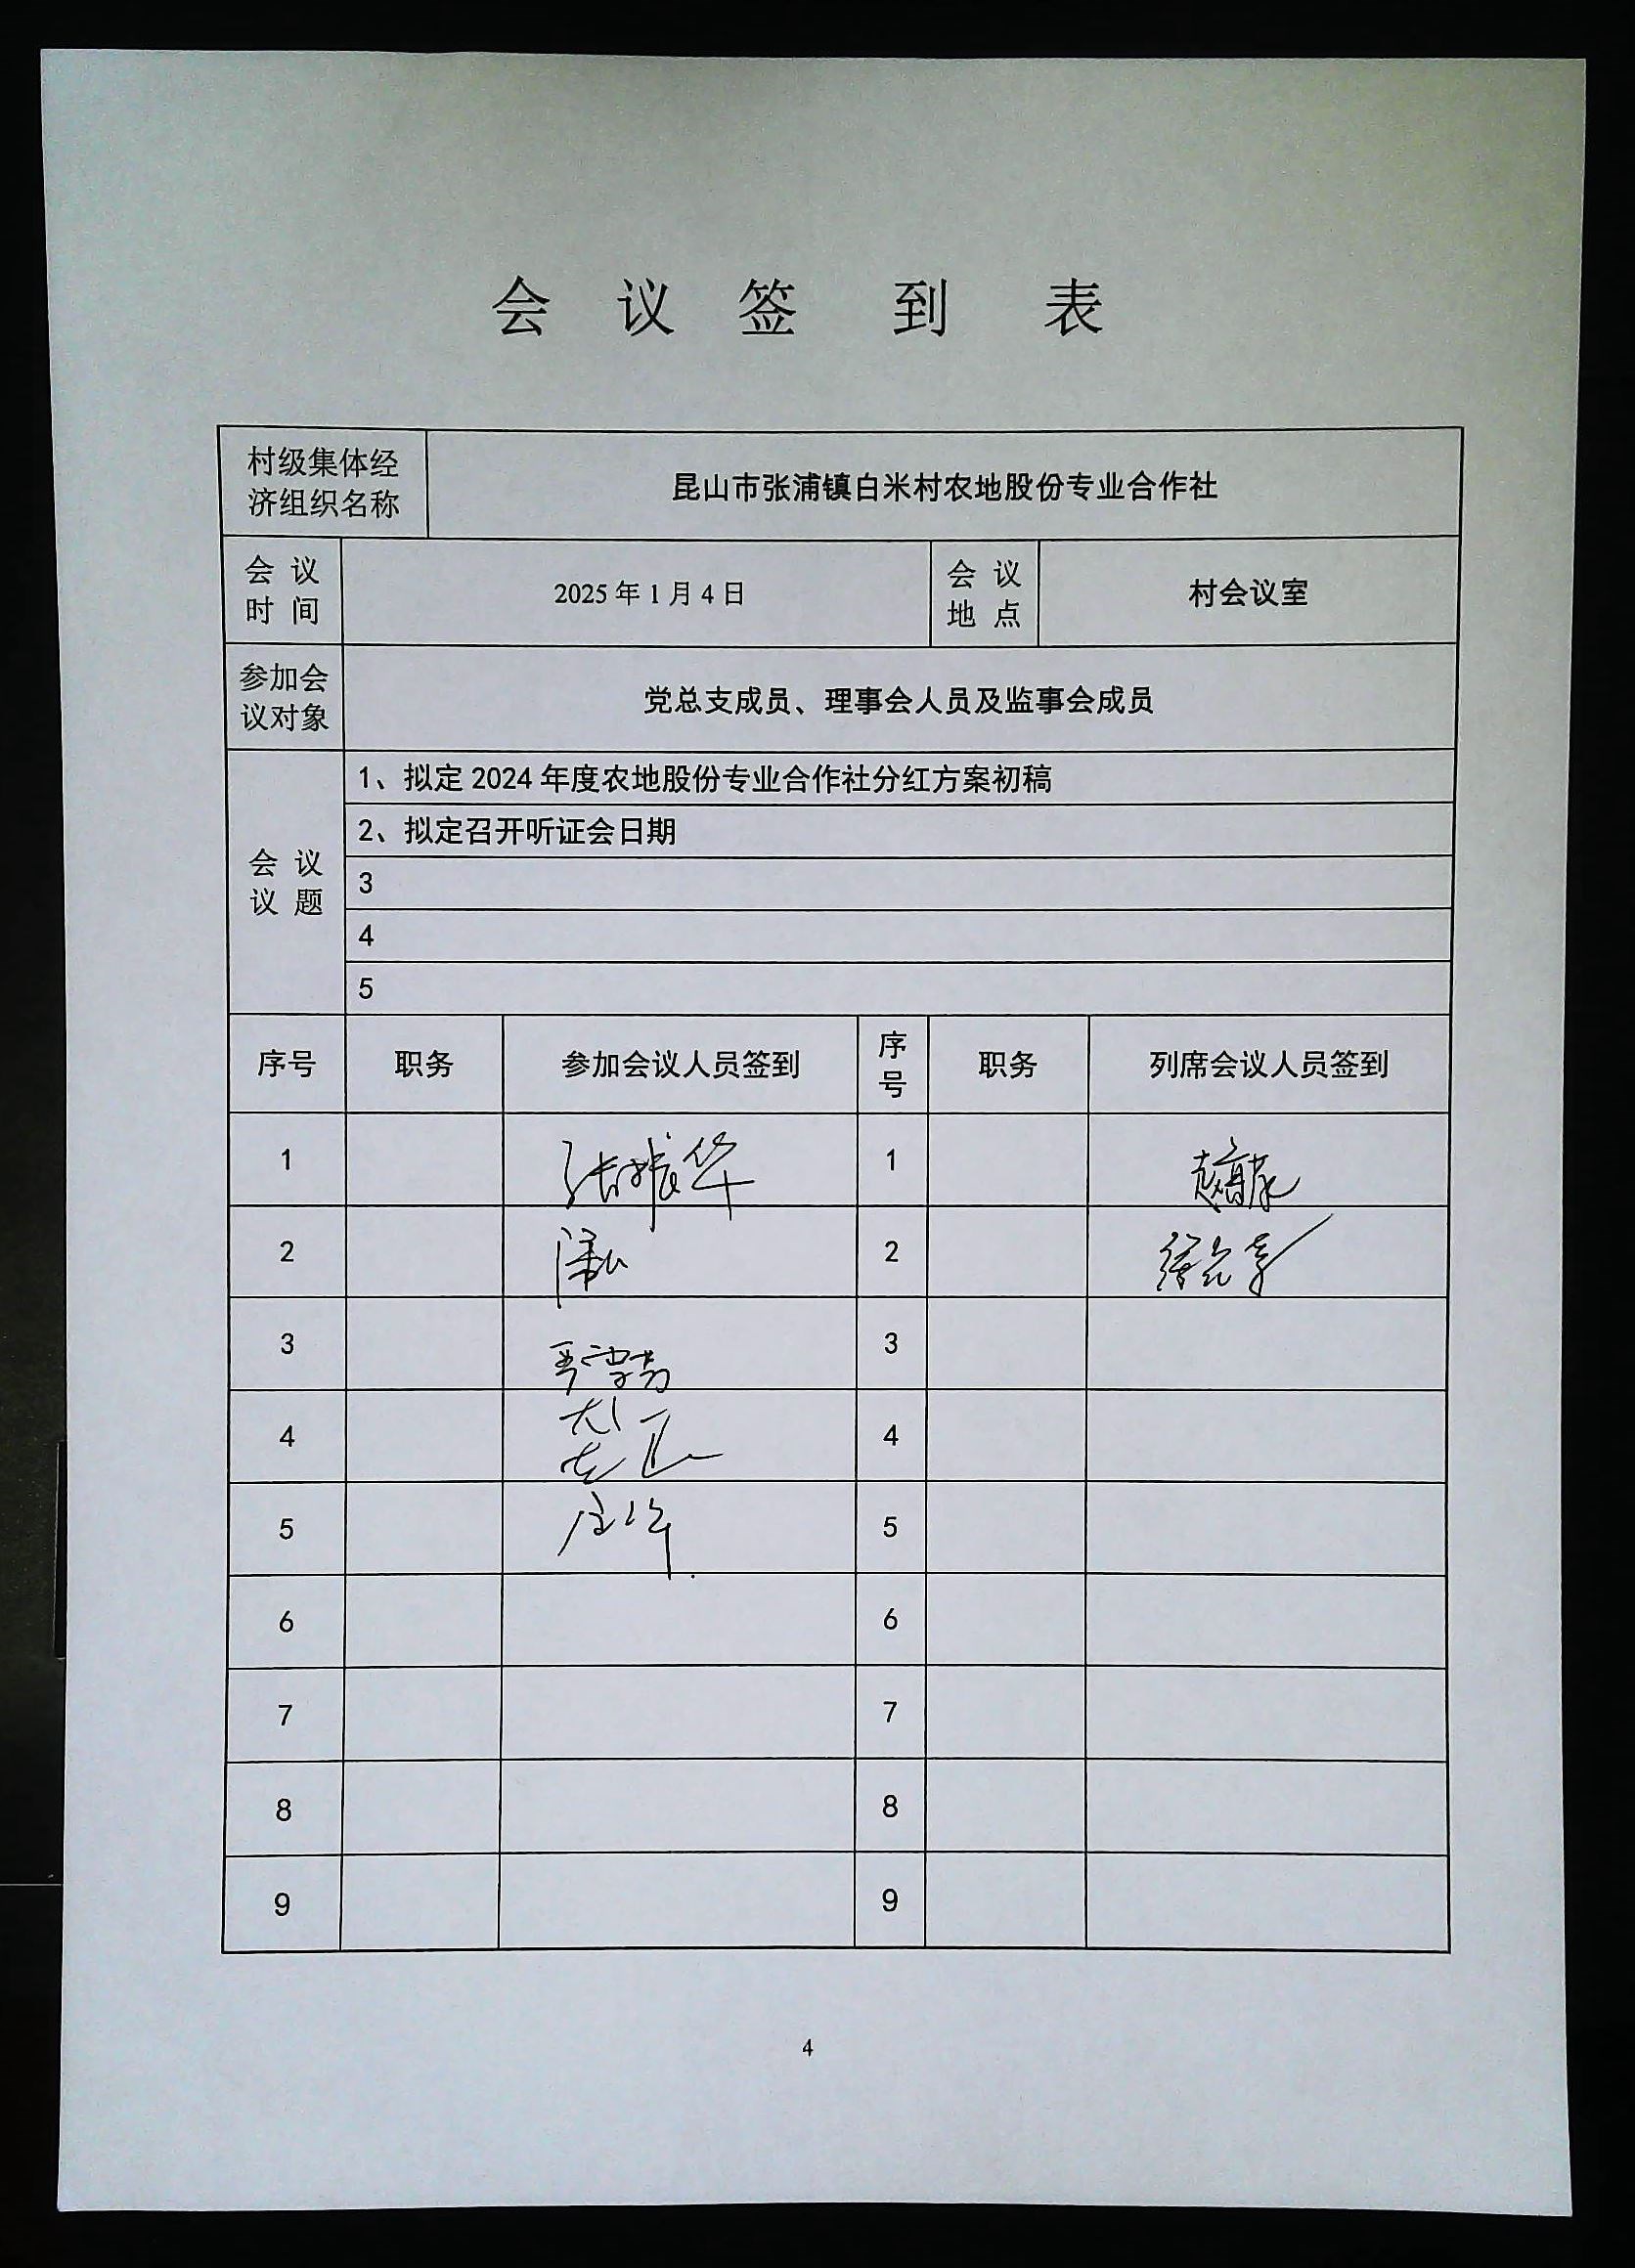 会议签到表
村级集体经
济组织名称
昆山市张浦镇白米村农地股份专业合作社
会议
时间
2025年1月4日
会议
地点
村会议室
参加会
议对象
党总支成员、理事会人员及监事会成员
会议
议题
1、拟定2024年度农地股份专业合作社分红方案初稿
2、拟定召开听证会日期
3
4
5
序号 职务 参加会议人员签到 序号 职务 列席会议人员签到
1 张振华 1
2 2
3 3
4 4
5 5
6 6
7 7
8 8
9 9
4